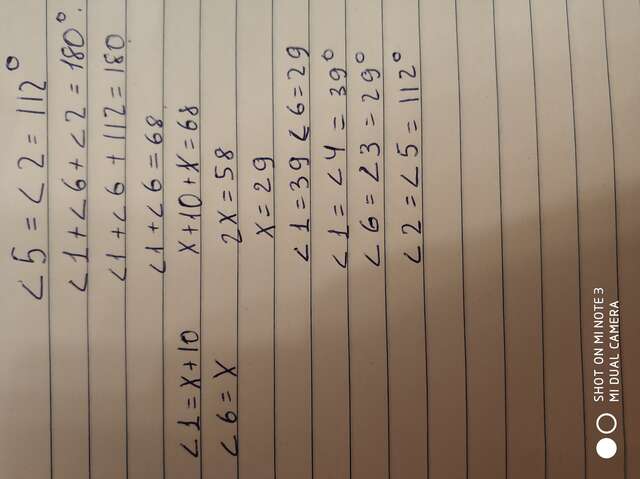 ∠5 = ∠2 = 112°
∠1 + ∠6 + ∠2 = 180°.
∠1 + ∠6 + 112 = 180
∠1 + ∠6 = 68
∠1 = x + 10 x + 10 + x = 68
∠6 = x 2x = 58
x = 29
∠1 = 39 ∠6 = 29
∠1 = ∠4 = 39°
∠6 = ∠3 = 29°
∠2 = ∠5 = 112°
SHOT ON MI NOTE 3
MI DUAL CAMERA